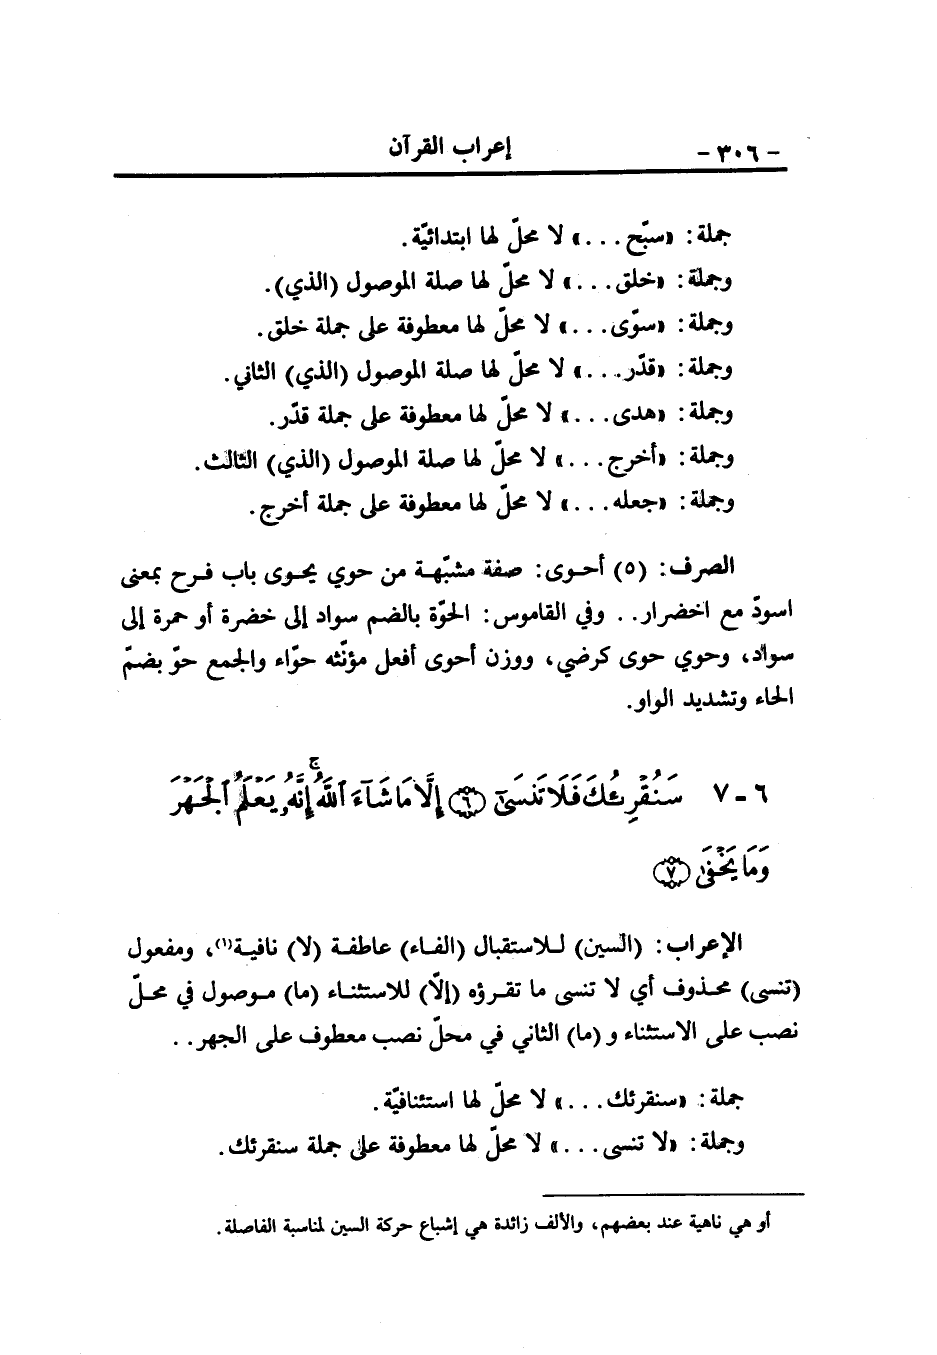 - ٣٠٦ - إعراب القرآن
جملة: «سبّح...» لا محلّ لها ابتدائيّة.
وجملة: «خلق...» لا محلّ لها صلة الموصول (الذي).
وجملة: «سوّى...» لا محلّ لها معطوفة على جملة خلق.
وجملة: «قدّر...» لا محلّ لها صلة الموصول (الذي) الثاني.
وجملة: «هدى...» لا محلّ لها معطوفة على جملة قدّر.
وجملة: «أخرج...» لا محلّ لها صلة الموصول (الذي) الثالث.
وجملة: «جعله...» لا محلّ لها معطوفة على جملة أخرج.
الصرف: (٥) أحوى: صفة مشبّهة من حوي يحوى باب فرح بمعنى
اسودّ مع اخضرار.. وفي القاموس: الحوّة بالضم سواد إلى خضرة أو حمرة إلى
سواد، وحوي حوى كرضي، ووزن أحوى أفعل مؤنّثه حوّاء والجمع حوّ بضمّ
الحاء وتشديد الواو.
٦ - ٧ سَنُقْرِئُكَ فَلَا تَنسَىٰٓ ﴿٦﴾ إِلَّا مَا شَآءَ ٱللَّهُ ۚ إِنَّهُۥ يَعْلَمُ ٱلْجَهْرَ
وَمَا يَخْفَىٰ ﴿٧﴾
الإعراب: (السين) للاستقبال (الفاء) عاطفة (لا) نافية(١)، ومفعول
(تنسى) محذوف أي لا تنسى ما تقرؤه (إلّا) للاستثناء (ما) موصول في محلّ
نصب على الاستثناء و(ما) الثاني في محلّ نصب معطوف على الجهر..
جملة: «سنقرئك...» لا محلّ لها استئنافيّة.
وجملة: «لا تنسى...» لا محلّ لها معطوفة على جملة سنقرئك.
أو هي ناهية عند بعضهم، والألف زائدة هي إشباع حركة السين لمناسبة الفاصلة.